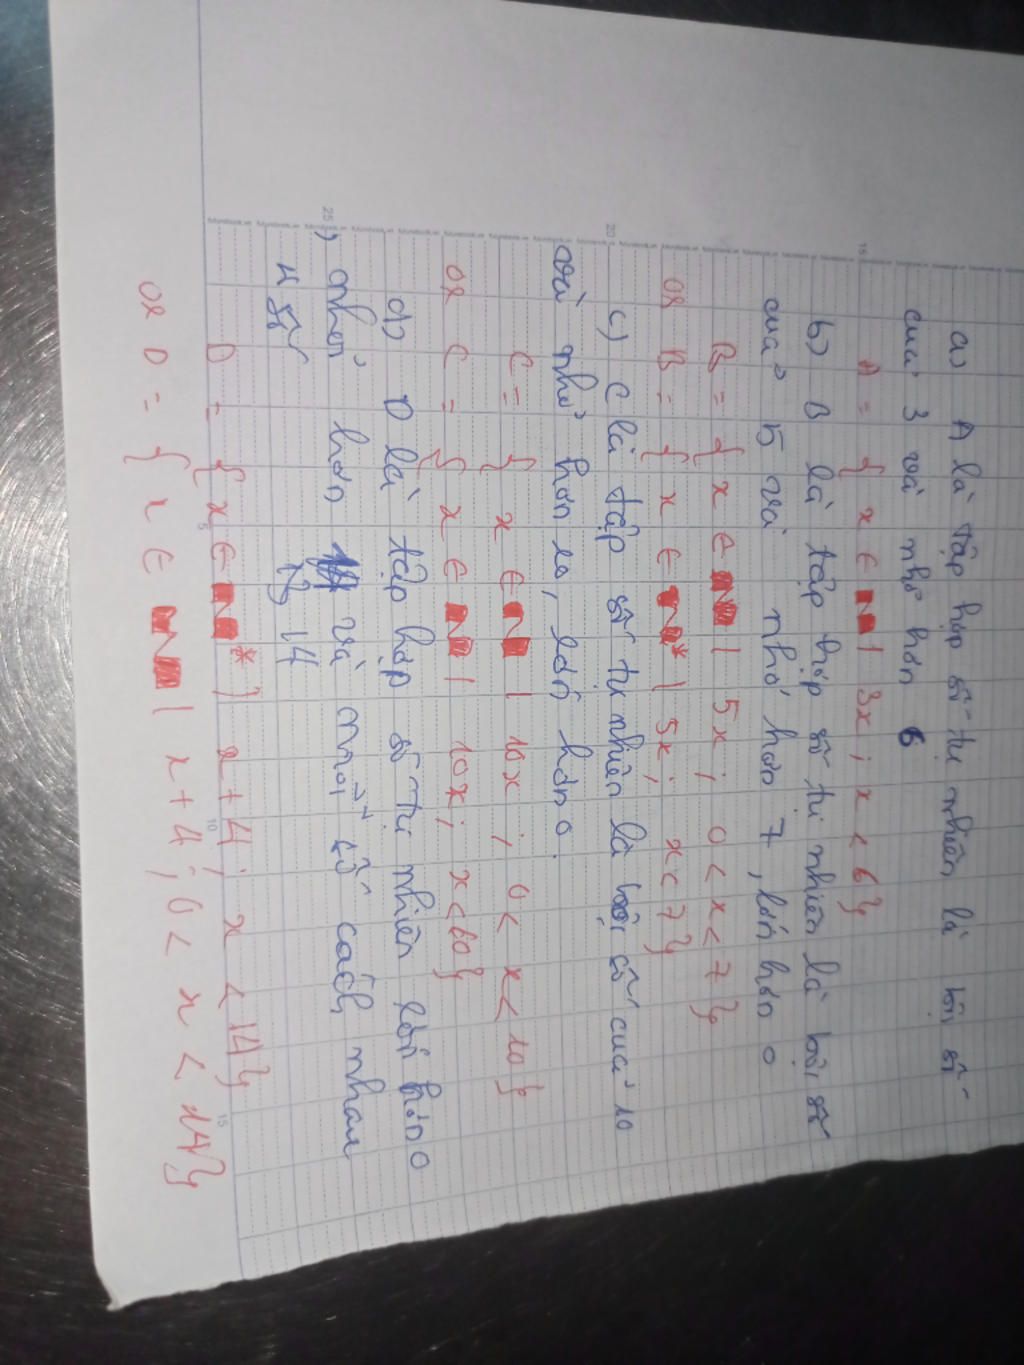 a) A là tập hợp số tự nhiên là bội số
của 3 và nhỏ hơn 6
A = { x ∈ | 3x ; x < 6}
b) B là tập hợp số tự nhiên là bội số
của 5 và nhỏ hơn 7, lớn hơn 0
B = { x ∈ | 5x ; 0 < x < 7 }
or B = { x ∈ * | 5x ; x < 7 }
c) C là tập số tự nhiên là bội số của 10
và nhỏ hơn 10, lớn hơn 0.
C = { x ∈ | 10x ; 0 < x < 10 }
or C = { x ∈ | 10x ; x < }
d) D là tập hợp số tự nhiên lớn hơn 0
nhỏ hơn và mỗi số cách nhau
4 số 14
D = { x ∈ * | x + 4 ; x < 14 }
or D = { x ∈ | x + 4 ; 0 < x < 14 }
25
20
15
5
10
15